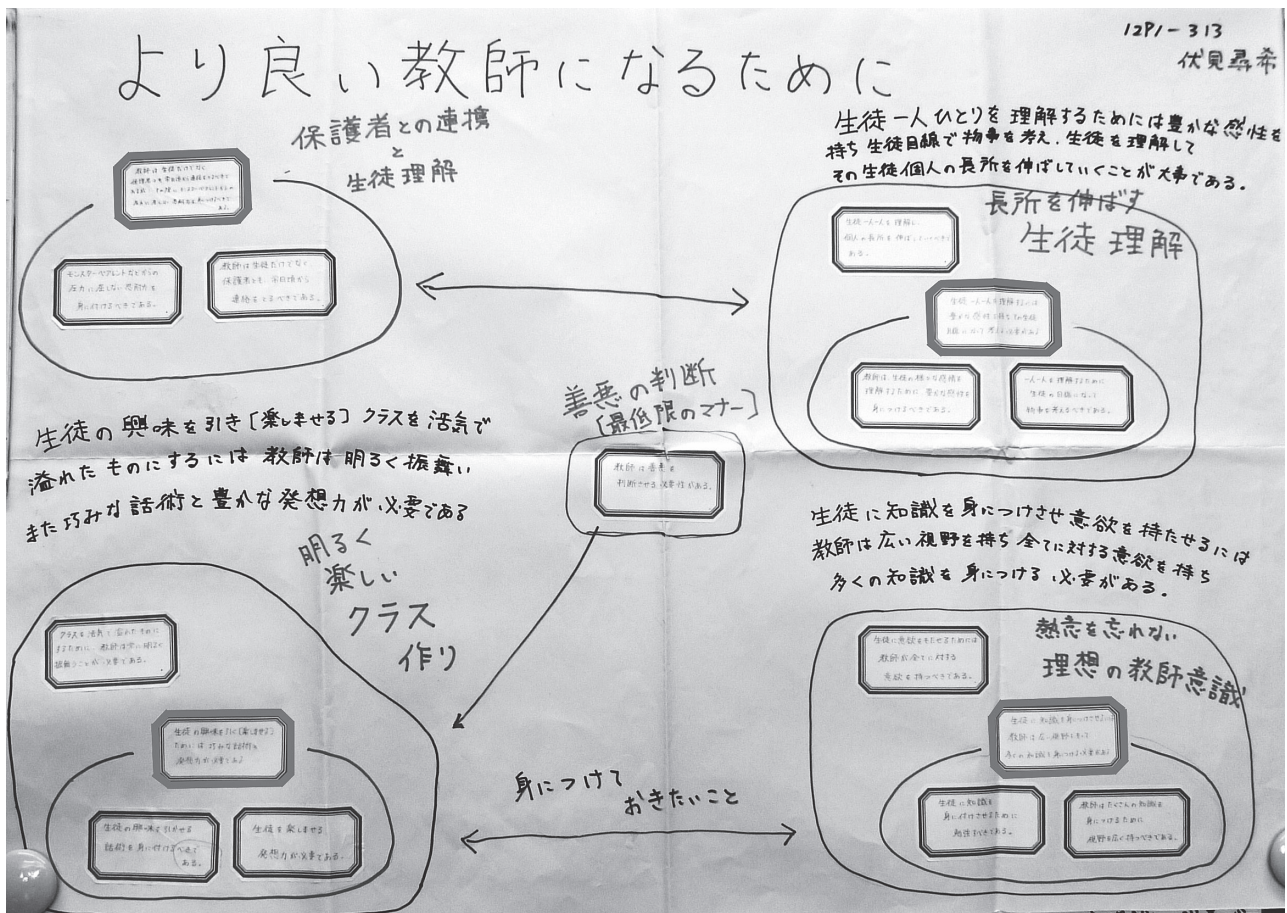 より良い教師になるために
12P1-313
伏見尋希
保護者との連携
と
生徒理解
教師は生徒だけでなく
モンスターペアレントなどからの
圧力に屈しない忍耐力を
身に付けるべきである。
教師は生徒だけでなく、
保護者とも、常日頃から
連絡をとるべきである。
生徒一人ひとりを理解するためには豊かな感性を
持ち生徒目線で物事を考え、生徒を理解して
その生徒個人の長所を伸ばしていくことが大事である。
長所を伸ばす
生徒理解
生徒一人一人を理解し、
個人の長所を伸ばしていくべきで
ある。
生徒一人一人を理解するには
豊かな感性を持ちその生徒
目線になって考える必要がある
教師は、生徒の様々な感情を
理解するために、豊かな感性を
身につけるべきである。
一人一人を理解するために
生徒の目線になって
物事を考えるべきである。
善悪の判断
[最低限のマナー]
教師は善悪を
判断させる必要性がある。
生徒の興味を引き[楽しませる]クラスを活気で
溢れたものにするには教師は明るく振舞い
また巧みな話術と豊かな発想力が必要である
明るく
楽しい
クラス
作り
クラスを活気で溢れたものに
するために、教師は常に明るく
振舞うことが必要である。
生徒の興味を引く[楽しませる]
ためには、巧みな話術と
発想力が必要である
生徒の興味を引かせる
話術を身に付けるべきで
ある。
生徒を楽しませる
発想力が必要である。
生徒に知識を身につけさせ意欲を持たせるには
教師は広い視野を持ち全てに対する意欲を持ち
多くの知識を身につける必要がある。
熱意を忘れない
理想の教師意識
生徒に意欲をもたせるためには
教師が全てに対する
意欲を持つべきである。
生徒に知識を身につけさせるには
教師は広い視野をもって
多くの知識を身につける必要がある
生徒に知識を
身に付けさせるために
勉強すべきである。
教師はたくさんの知識を
身につけるために
視野を広く持つべきである。
身につけて
おきたいこと